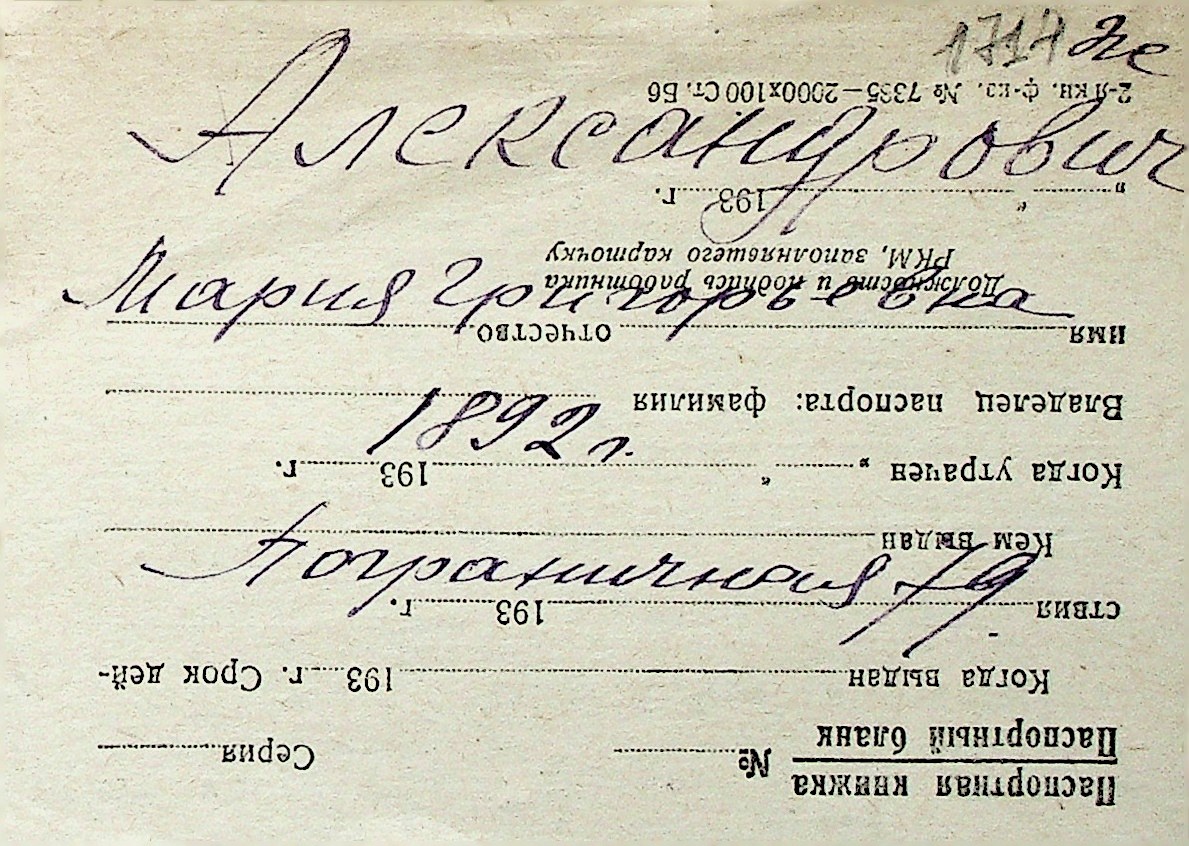 1717
Александрович
Мария Григорьевна
1892 г.
Пограничная 79
Паспортная книжка
Паспортный бланк № Серия
Когда выдан 193 г. Срок дей-
ствия 193 г.
Кем выдан
Когда утрачен „ “ 193 г.
Владелец паспорта: фамилия
имя отчество
Должность и подпись работника
РКМ, заполнявшего карточку
„ “ 193 г.
2-я кн. ф-ка. № 7385—2000х100 Ст. Б6